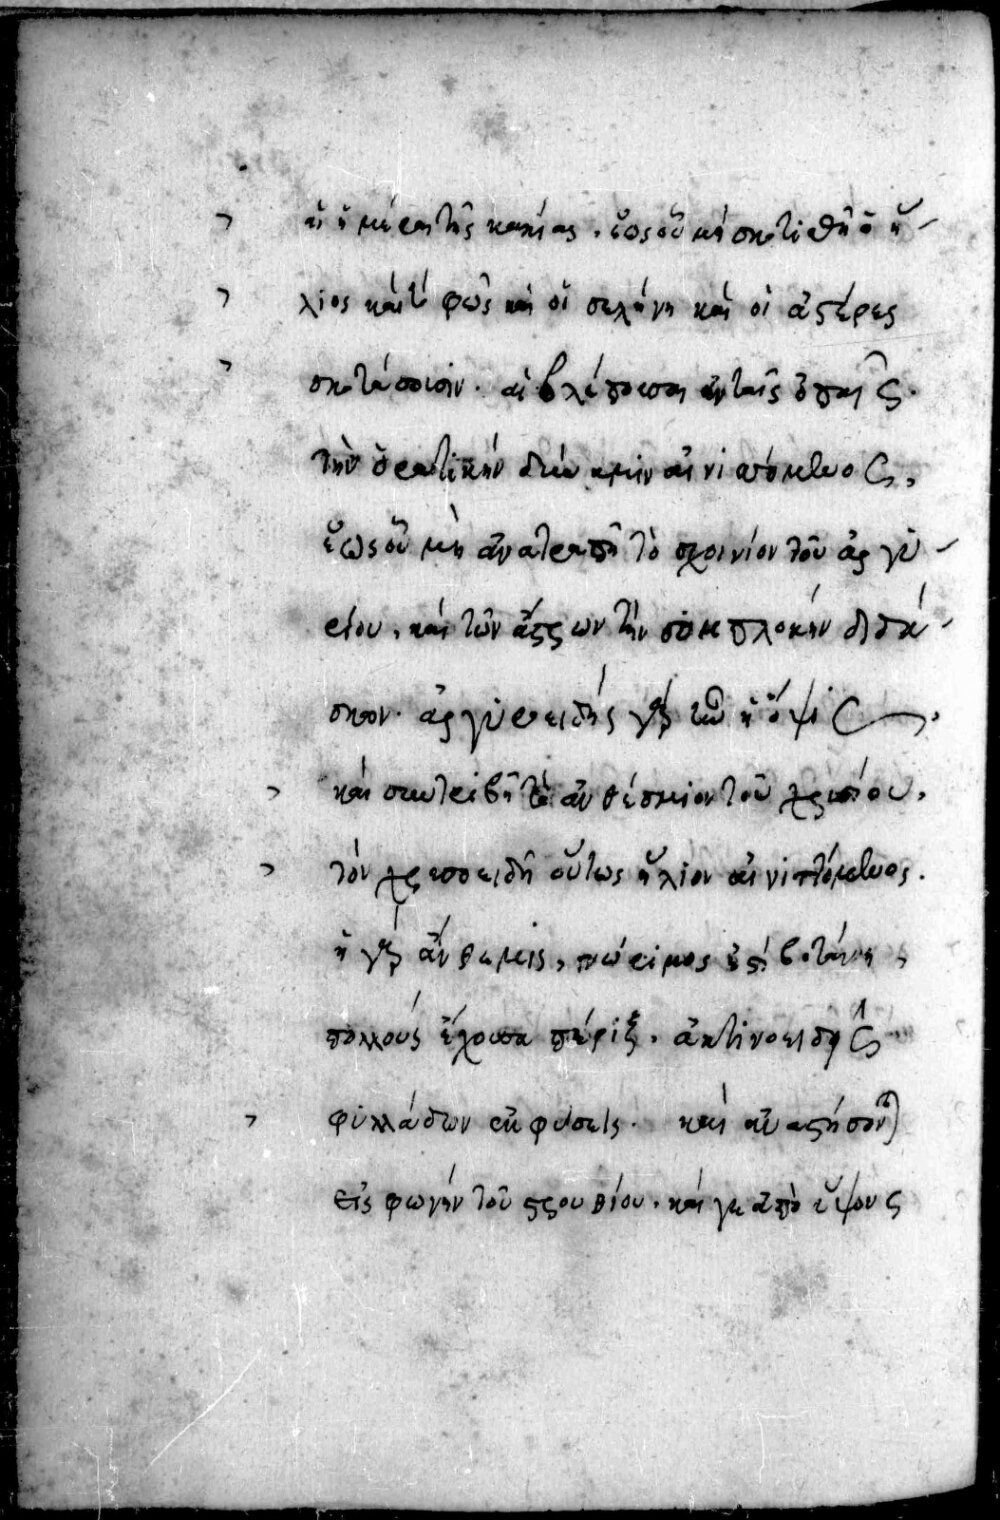 αἱ ἡμέραι τῆς κακίας. ἕως οὗ μὴ σκοτισθῇ ὁ ἥ
λιος καὶ τὸ φῶς καὶ ἡ σελήνη καὶ οἱ ἀστέρες
σκοτάσουσιν. αἱ βλέπουσαι ἐν ταῖς ὀπαῖς.
τὴν ὁρατικὴν αἰνιττόμενος,
ἕως οὗ μὴ ἀνατραπῇ τὸ σχοινίον τοῦ ἀργυ
ρίου, καὶ τῶν ἄστρων τὴν συμπλοκὴν διδά
σκων. ἀργυροειδὴς γὰρ τούτων ἡ ὄψις.
καὶ συντριβῇ τὸ ἀνθέμιον τοῦ χρυσίου,
τὸν χρυσοειδῆ οὕτως ἥλιον αἰνιττόμενος.
ἡ γὰρ ἀνθεμὶς, γνώριμος ἐστὶ βοτάνη,
πολλοὺς ἔχουσα πέριξ. ἀκτινοειδῆς
φυλλάδων ἐκφύσεις. καὶ ἀναστήσονται
εἰς φωνὴν τοῦ στρουθίου. καί γε ἀπὸ ὕψους